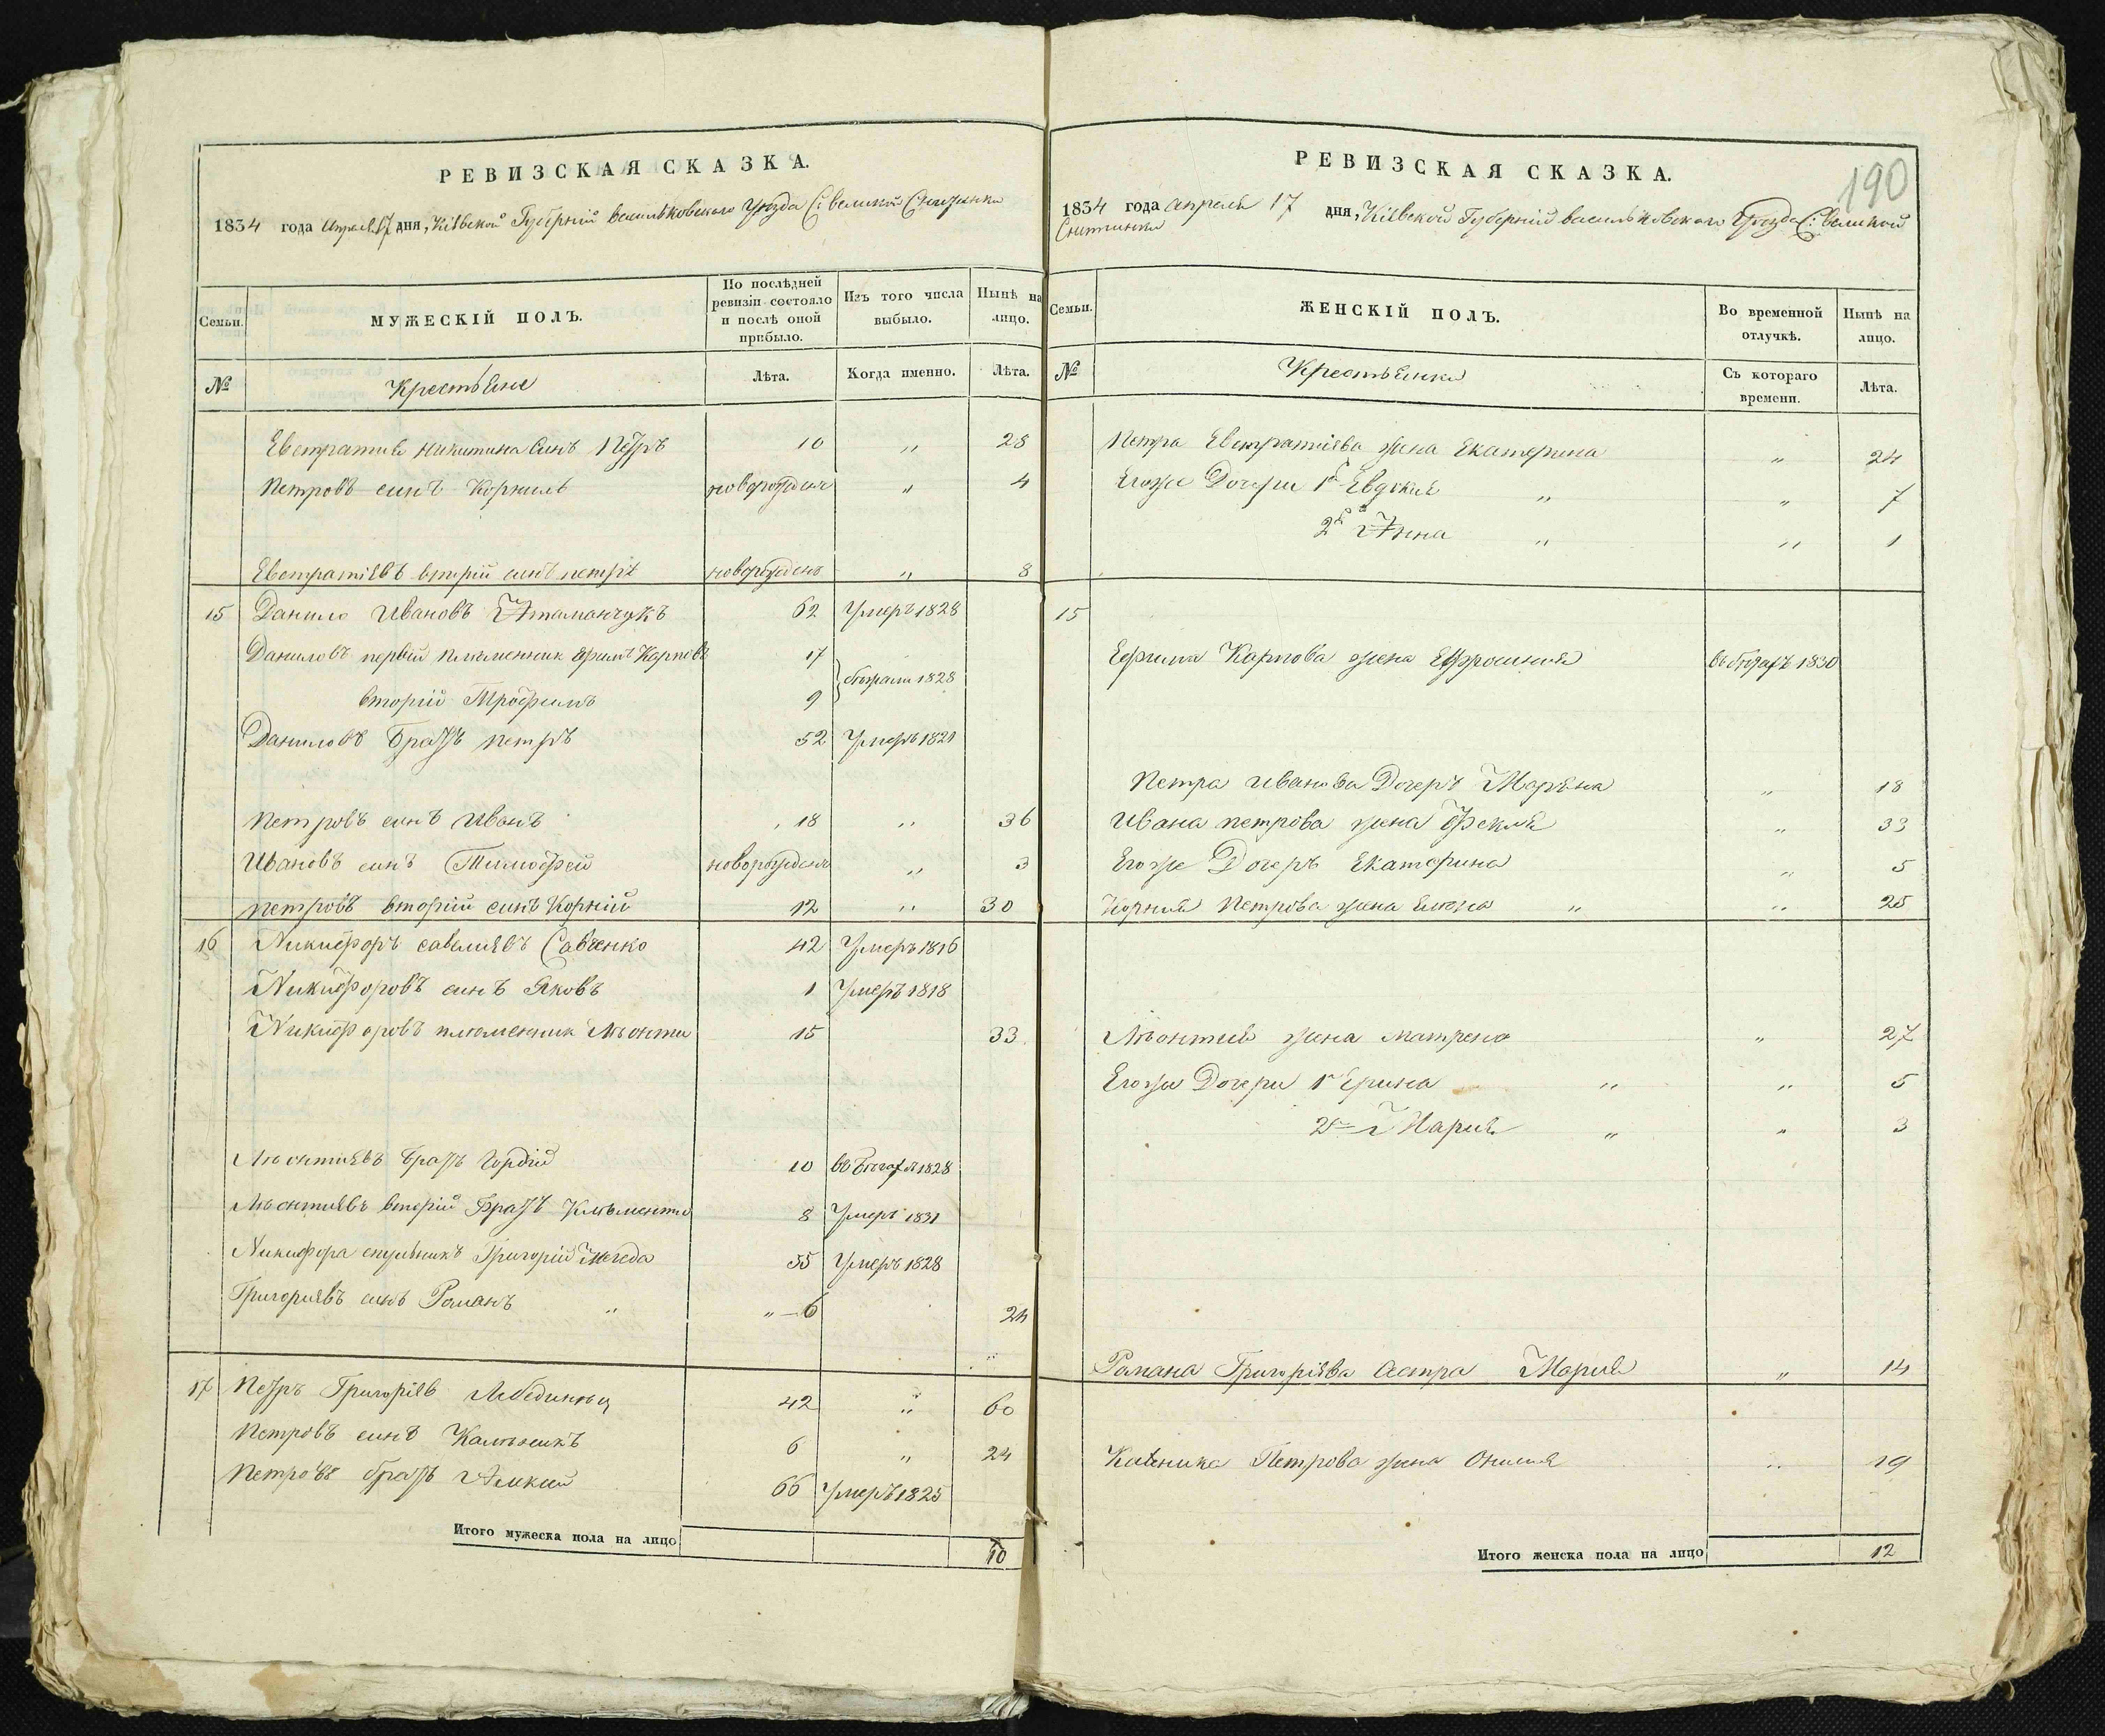 РЕВИЗСКАЯ СКАЗКА.
1834 года Апреля 17 дня, Кіевской Губерніи васильковскаго Уѣзда С: великой Снитинки
Семьи.
МУЖЕСКІЙ ПОЛЪ.
По послѣдней ревизіи состояло и послѣ оной прибыло.
Изъ того числа выбыло.
Нынѣ на лицо.
№
Крестьяне
Лѣта.
Когда именно.
Лѣта.
Евстратия никитина синъ Петръ 10 „ 28
Петровъ синъ Корнилъ новорожденъ „ 4
Евстратіевъ вторій синъ петръ новорожденъ „ 8
15 Данило Ивановъ Атаманчукъ 62 Умеръ 1828
Даниловъ первій племенникъ Ефимъ Карповъ 17
бѣжали 1828
вторій Трофимъ 9
Даниловъ братъ петръ 52 Умеръ 1821
петровъ синъ Иванъ 18 „ 36
Ивановъ синъ Тимофей новорожденъ „ 3
петровъ вторій синъ Корній 12 „ 30
16 Никифоръ савелиевъ Савченко 42 Умеръ 1816
Никифоровъ синъ Яковъ 1 Умеръ 1818
Никифоровъ племенник Лѣонти 15 33
Лѣонтиевъ братъ Гордій 10 въ бѣгах 1828
Лѣонтиевъ вторій братъ Клѣменти 8 Умеръ 1831
Никифора Григорій 55 Умеръ 1828
Григориевъ синъ Романъ „ „ – 6 24
17 Петръ Григоріев Лебединец 42 „ 60
Петровъ синъ Каленикъ 6 „ 24
Петровъ братъ 66 Умеръ 1825
Итого мужеска пола на лицо 10
РЕВИЗСКАЯ СКАЗКА.
190
1834 года апреля 17 дня, Кіевской Губерніи васильковскаго Уѣзда С: великой
Снитинки
Семьи.
ЖЕНСКІЙ ПОЛЪ.
Во временной отлучкѣ.
Нынѣ на лицо.
№
Крестьянки
Съ котораго времени.
Лѣта.
Петра Евстратиева жена Екатерина „ 24
Егоже Дочери 1я Евдокия „ „ 7
2я Анна „ „ 1
15
Ефима Карпова жена Ефросиния въ бѣгахъ 1830
Петра иванова Дочеръ Марьяна „ 18
Ивана петрова жена Фекла „ 33
Егоже Дочеръ Екатерина „ 5
Корния Петрова жена „ „ 25
Лѣонтия жена матрена „ 27
Егоже Дочери 1я Ерина „ „ 5
2я Мария „ „ 3
Романа Григоріева Сестра Мария „ 14
Каленика Петрова жена „ 19
Итого женска пола на лицо 12